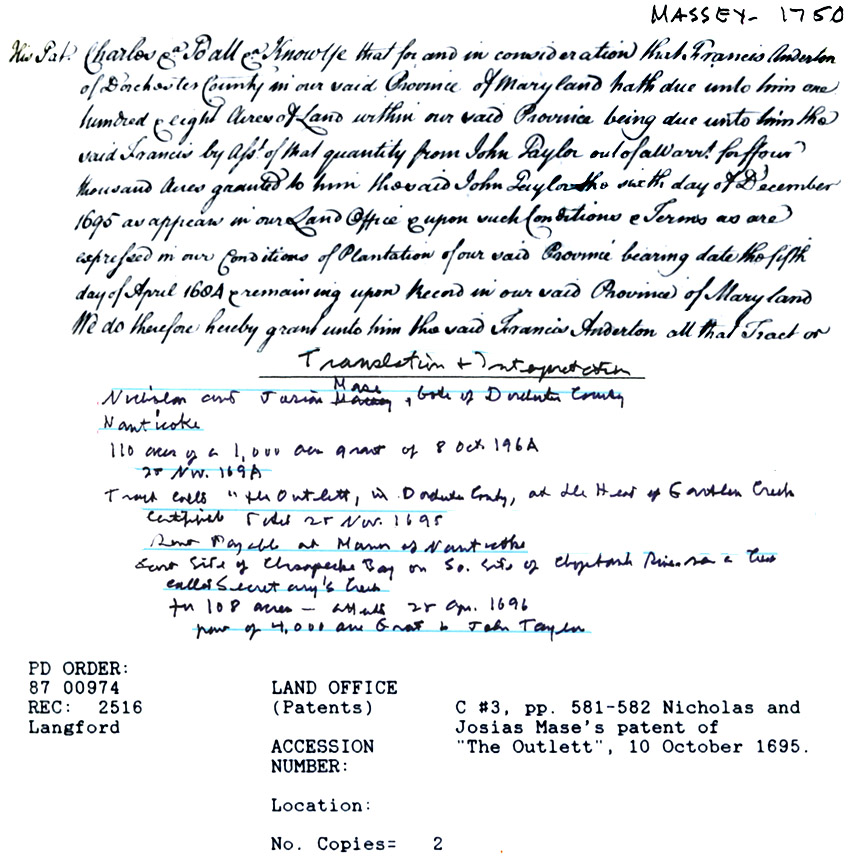 MASSEY- 1750
His Pat. Charles &a To all &a Know Ye that for and in consideration that Francis Anderton
of Dorchester County in our said Province of Maryland hath due unto him one
hundred & eight Acres of Land within our said Province being due unto him the
said Francis by Asst. of that quantity from John Taylor out of a Warrt. for ffour
thousand Acres granted to him the said John Taylor the sixth day of December
1695 as appears in our Land Office & upon such Conditions & Terms as are
expressed in our Conditions of Plantation of our said Province bearing date the fifth
day of April 1684 & remaining upon Record in our said Province of Maryland
We do therefore hereby grant unto him the said Francis Anderton all that Tract or
Translation & Interpretation
Mase
Nicholas and Josias , both of Dorchester County
Nanticoke
110 acres of a 1,000 acre grant of 8 Oct. 1964
25 Nov. 1694
Tract called "the Outlett, in Dorchester County, at the Head of Creek
Certified 25 Nov. 1695
Rent Payable at Manor of Nanticoke
East Side of Chesapeake Bay on So. Side of Choptank River on a Creek
called Secretary's Creek
for 108 acres - 1696
part of 4,000 acre Grant to John Taylor
PD ORDER:
87 00974
REC: 2516
Langford
LAND OFFICE
(Patents)
ACCESSION
NUMBER:
Location:
No. Copies= 2
C #3, pp. 581-582 Nicholas and
Josias Mase's patent of
"The Outlett", 10 October 1695.